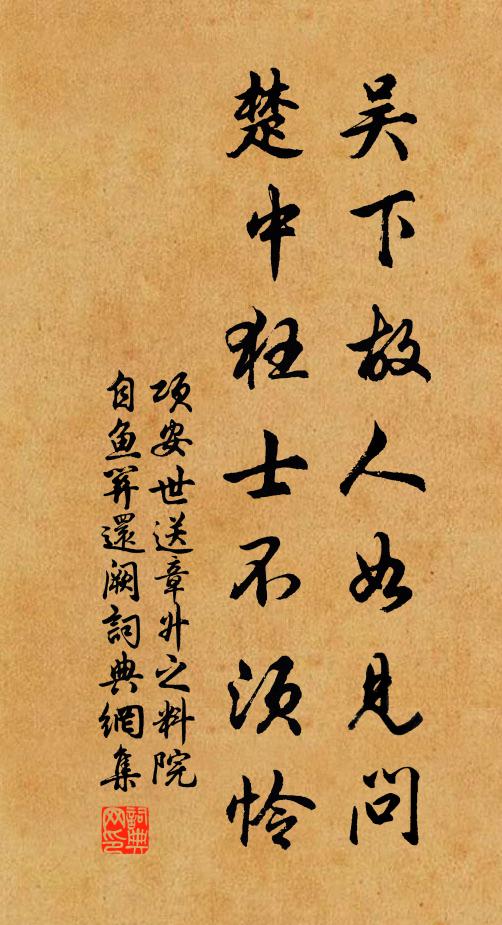 吴下故人如见问
楚中狂士不须怜
项安世送章升之料院
自鱼關還阙詞典網集
詞典网印